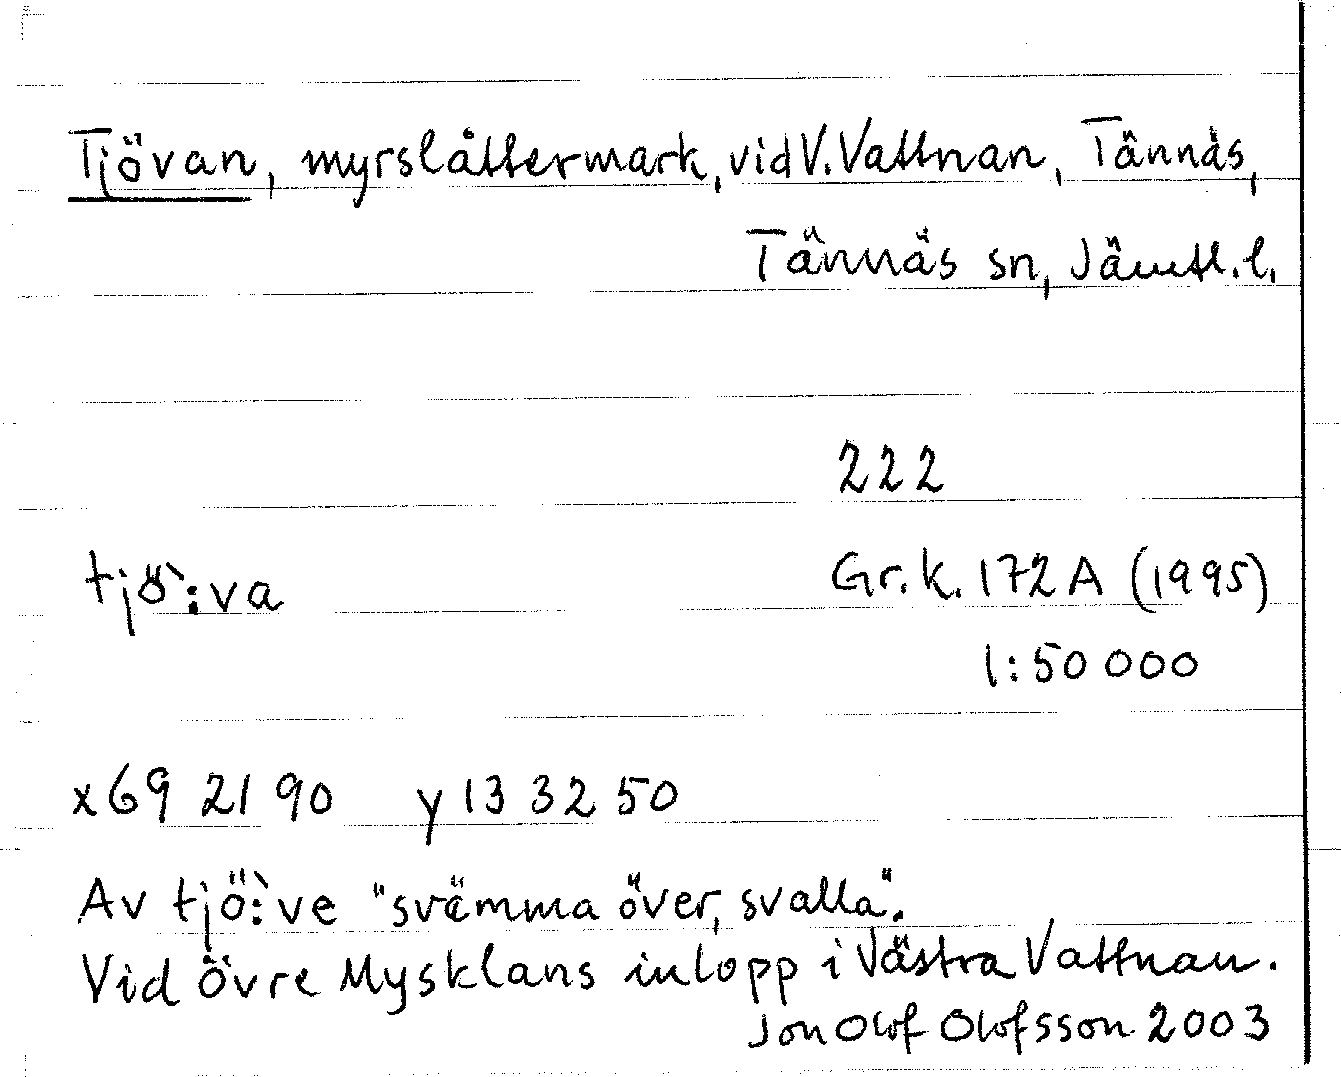 Tjövan, myrslåttermark, vid V. Vattnan, Tännäs,
Tännäs sn, Jämtl. l.
222
tjö`:va
Gr. k. 172 A (1995)
1:50 000
x 69 21 90 y 13 32 50
Av tjö`:ve "svämma över, svalla".
Vid Övre Mysklans inlopp i Västra Vattnan.
Jon Olof Olofsson 2003